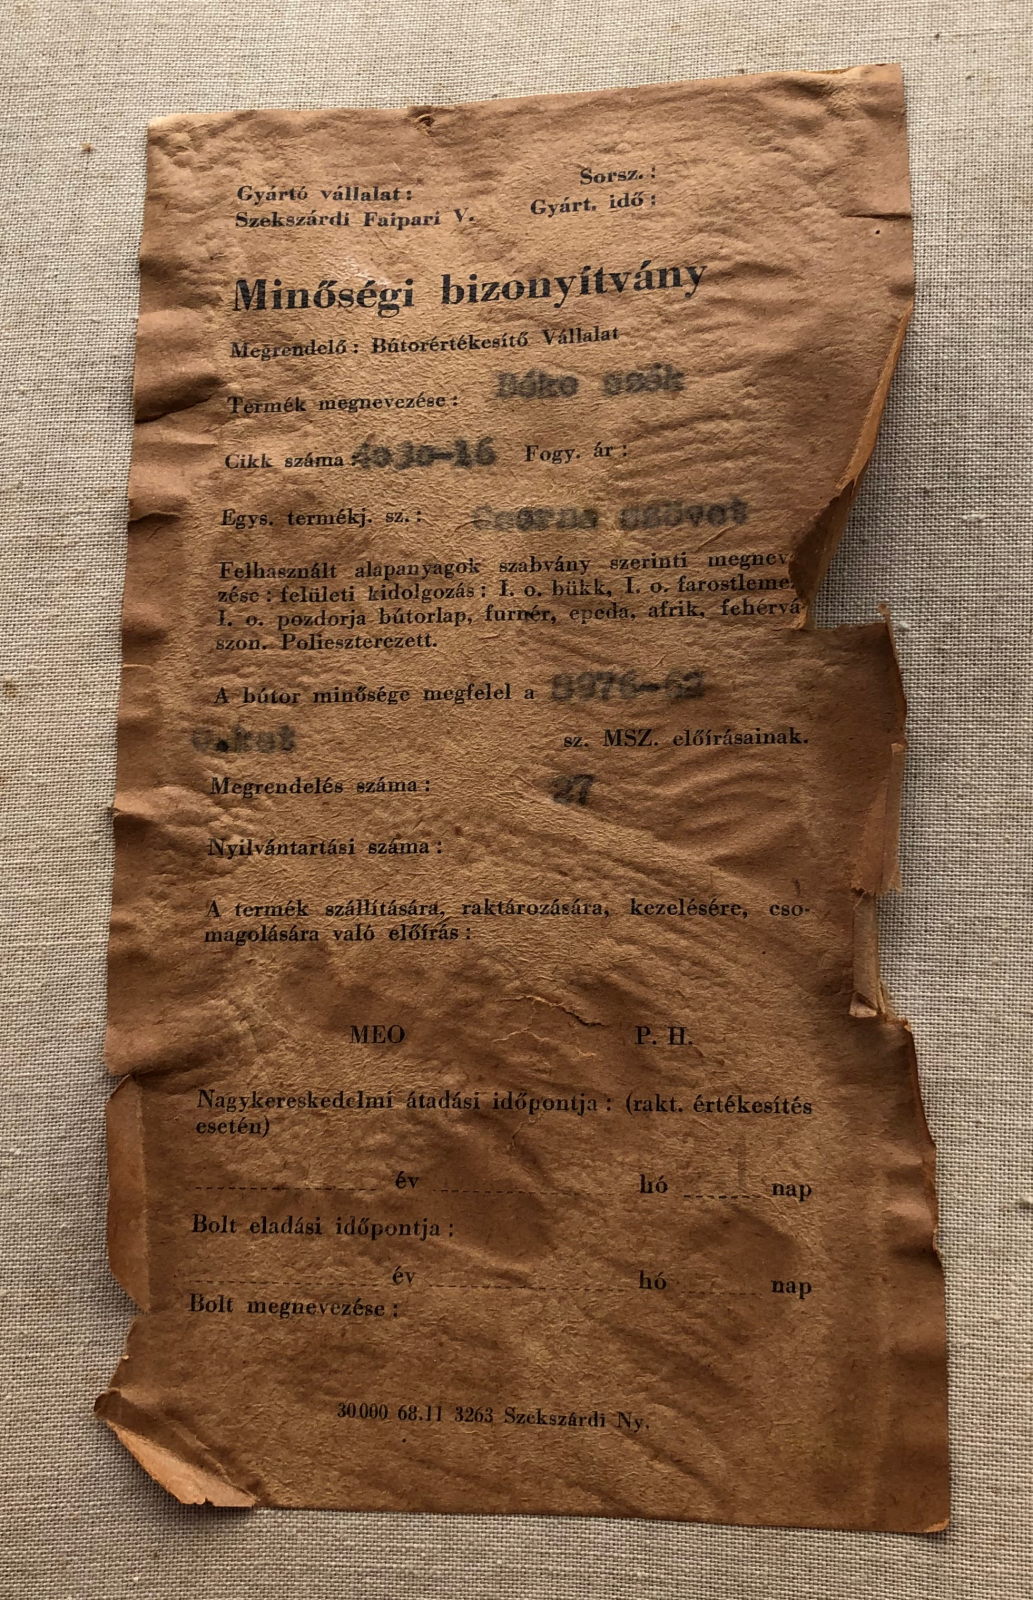 Gyártó vállalat:
Szekszárdi Faipari V.
Sorsz.:
Gyárt. idő:
Minőségi bizonyítvány
Megrendelő: Bútorértékesítő Vállalat
Termék megnevezése:
Cikk száma: Fogy. ár:
Egys. termékj. sz.: szövet
Felhasznált alapanyagok szabvány szerinti megnev
zése: felületi kidolgozás: I. o. bükk, I. o. farostleme
I. o. pozdorja bútorlap, furnér, epeda, afrik, fehérvá
szon. Poliészterezett.
A bútor minősége megfelel a
sz. MSZ. előírásainak.
Megrendelés száma: 27
Nyilvántartási száma:
A termék szállítására, raktározására, kezelésére, cso-
magolására való előírás:
MEO P. H.
Nagykereskedelmi átadási időpontja: (rakt. értékesítés
esetén)
év hó nap
Bolt eladási időpontja:
év hó nap
Bolt megnevezése:
30000 68.11 3263 Szekszárdi Ny.